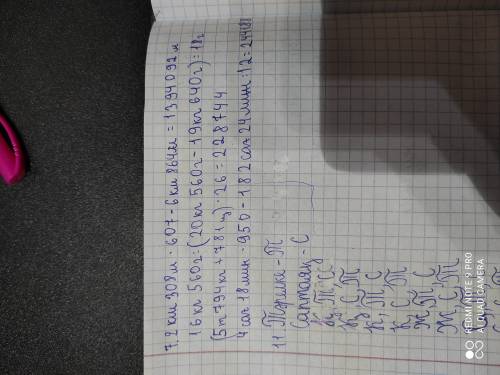 7. 2 км 309 м · 607 - 6 км 864 м = 1394092 м
16 кг 560 г : (20 кг 560 г - 19 кг 640 г) = 18 г
(5 т 794 кг + 781 ц) · 26 = 228744
4 сағ 18 мин · 950 - 182 сағ 24 мин : 12 =
11. Тәрелке - Т
Саптаяқ - С
К, С, Т
К, Т, С
К, С, Т
Ж, Т, С
Ж, С, Т
REDMI NOTE 9 PRO
AI QUAD CAMERA